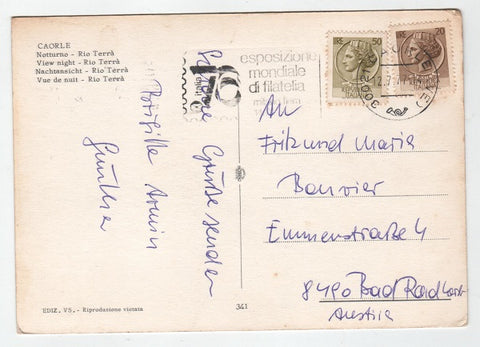 CAORLE
Notturno - Rio Terrà
View night - Rio Terrà
Nachtansicht - Rio Terrà
Vue de nuit - Rio Terrà
esposizione
mondiale
di filatelia
Schöne Grüße senden
Brigitte Armin
Günther
An
Fritz und Maria
Bonvier
Emmenstraße 4
8490 Bad Radkers
Austria
EDIZ. VS. - Riproduzione vietata
341